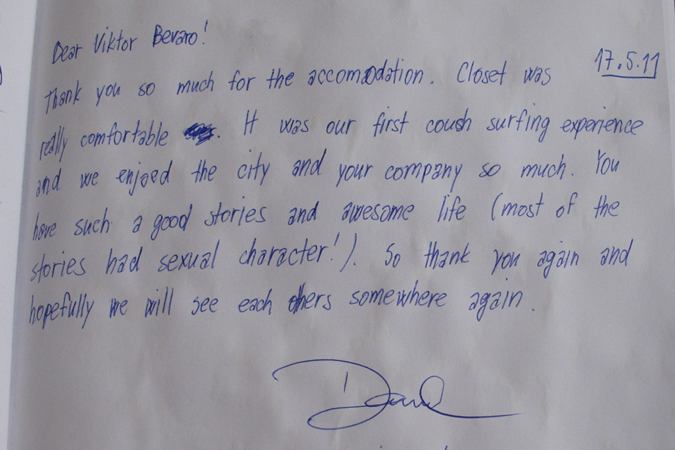 Dear Viktor Bevaro!
17.5.11
Thank you so much for the accomodation. Closet was
really comfortable. It was our first couch surfing experience
and we enjoed the city and your company so much. You
have such a good stories and awesome life (most of the
stories had sexual character!). So thank you again and
hopefully we will see each others somewhere again.